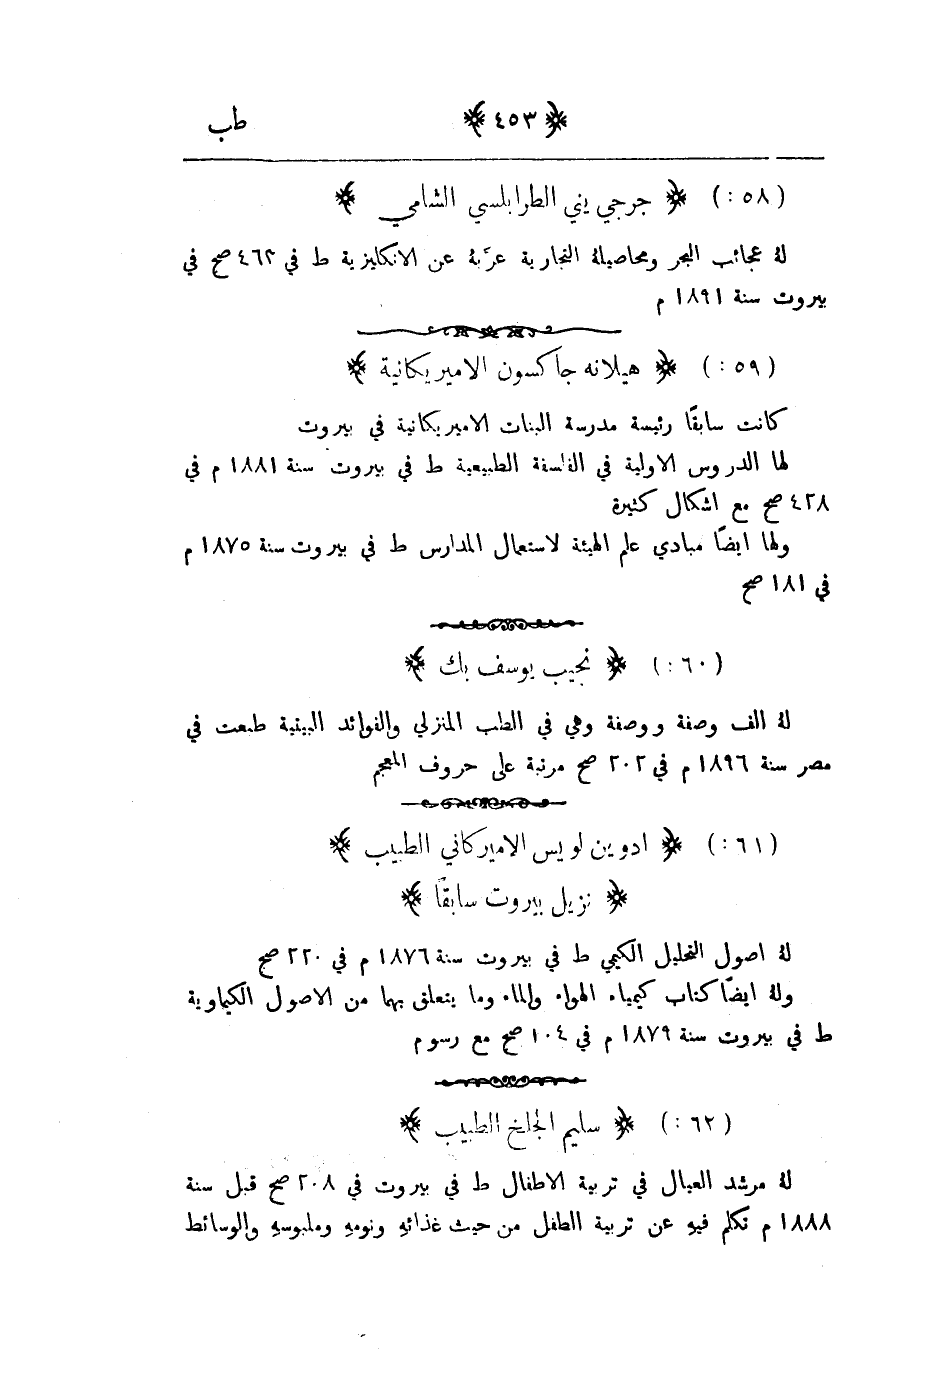 ﴿ ٤٥٣ ﴾ طب
(٥٨:) ﴿ جرجي يني الطرابلسي الشامي ﴾
لهُ عجائب البحر ومحاصيلهُ التجارية عرَّبهُ عن الانكليزية ط في ٤٦٢ صح في
بيروت سنة ١٨٩١ م
(٥٩:) ﴿ هيلانه جاكسون الاميريكانية ﴾
كانت سابقًا رئيسة مدرسة البنات الاميريكانية في بيروت
لها الدروس الاولية في الفلسفة الطبيعية ط في بيروت سنة ١٨٨١ م في
٤٢٨ صح مع اشكال كثيرة
ولها ايضًا مبادي علم الهيئة لاستعمال المدارس ط في بيروت سنة ١٨٧٥ م
في ١٨١ صح
(٦٠:) ﴿ نجيب يوسف بك ﴾
لهُ الف وصفة ووصفة وهي في الطب المنزلي والفوائد البيتية طبعت في
مصر سنة ١٨٩٦ م في ٢٠٢ صح مرتبة على حروف المعجم
(٦١:) ﴿ ادوين لويس الاميركاني الطبيب ﴾
﴿ نزيل بيروت سابقًا ﴾
لهُ اصول التحليل الكيمي ط في بيروت سنة ١٨٧٦ م في ٢٢٠ صح
ولهُ ايضًا كتاب كيمياء الهواء والماء وما يتعلق بهما من الاصول الكيماوية
ط في بيروت سنة ١٨٧٩ م في ١٠٤ صح مع رسوم
(٦٢:) ﴿ سليم الجلخ الطبيب ﴾
لهُ مرشد العيال في تربية الاطفال ط في بيروت في ٢٠٨ صح قبل سنة
١٨٨٨ م تكلم فيهِ عن تربية الطفل من حيث غذائهِ ونومهِ وملبوسهِ والوسائط